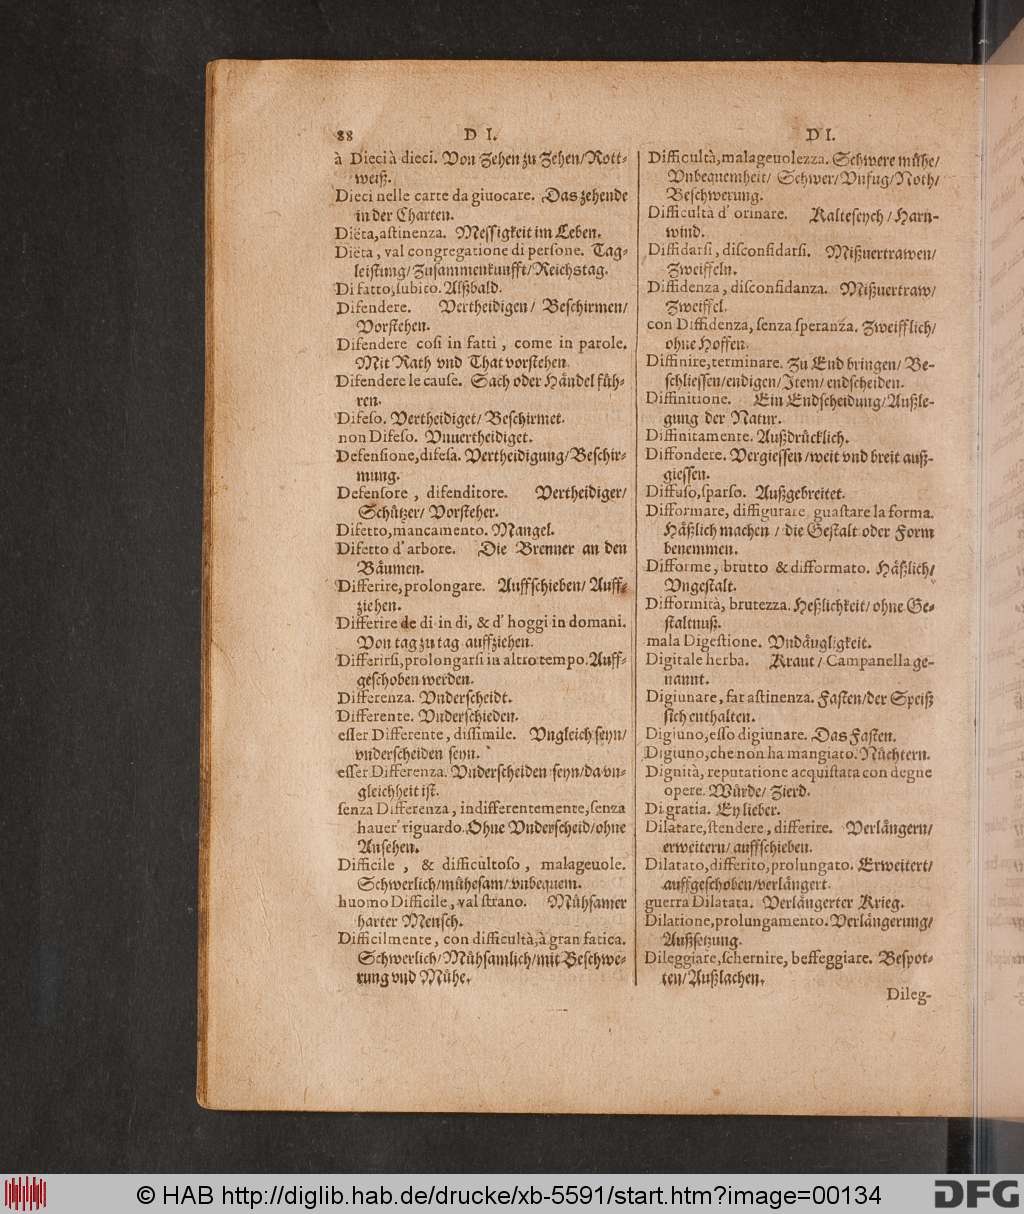 88 D I. D I.
à Dieci à dieci. Von Zehen zu Zehen/Rott-
weiß.
Dieci nelle carte da giuocare. Das zehende
in der Charten.
Diëta, aſtinenza. Meſſigkeit im Leben.
Diëta, val congregatione di perſone. Tag-
leiſtung/Zuſammenkunfft/Reichstag.
Di fatto, ſubito. Alßbald.
Difendere. Vertheidigen/ Beſchirmen/
Vorſtehen.
Difendere coſi in fatti, come in parole.
Mit Rath vnd That vorſtehen.
Difendere le cauſe. Sach oder Händel füh-
ren.
Difeſo. Vertheidiget/ Beſchirmet.
non Difeſo. Vnuertheidiget.
Defenſione, difeſa. Vertheidigung/Beſchir-
mung.
Defenſore, difenditore. Vertheidiger/
Schützer/ Vorſteher.
Difetto, mancamento. Mangel.
Difetto d'arbore. Die Brenner an den
Bäumen.
Differire, prolongare. Auffſchieben/ Auff-
ziehen.
Differire de di in di, & d'hoggi in domani.
Von tag zu tag auffziehen.
Differirſi, prolongarſi in altro tempo. Auff-
geſchoben werden.
Differenza. Vnderſcheidt.
Differente. Vnderſchieden.
eſſer Differente, diſſimile. Vngleich ſeyn/
vnderſcheiden ſeyn.
eſſer Differenza. Vnderſcheiden ſeyn/da vn-
gleichheit iſt.
ſenza Differenza, indifferentemente, ſenza
hauer riguardo. Ohne Vnderſcheid/ohne
Anſehen.
Difficile, & difficultoſo, malageuole.
Schwerlich/müheſam/vnbequem.
huomo Difficile, val ſtrano. Mühſamer
harter Menſch.
Difficilmente, con difficultà, à gran fatica.
Schwerlich/Mühſamlich/mit Beſchwe-
rung vnd Mühe.
Difficultà, malageuolezza. Schwere mühe/
Vnbequemheit/ Schwer/Vnfug/Noth/
Beſchwerung.
Difficultà d'orinare. Kalteſeych/Harn-
wind.
Diffidarſi, diſconfidarſi. Mißuertrawen/
Zweiffeln.
Diffidenza, diſconfidanza. Mißuertraw/
Zweiffel.
con Diffidenza, ſenza ſperanza. Zweifflich/
ohne Hoffen.
Diffinire, terminare. Zu End bringen/ Be-
ſchlieſſen/endigen/Item/endſcheiden.
Diffinitione. Ein Endſcheidung/Außle-
gung der Natur.
Diffinitamente. Außdrücklich.
Diffondere. Vergieſſen/weit vnd breit auß-
gieſſen.
Diffuſo, ſparſo. Außgebreitet.
Difformare, diffigurare, guaſtare la forma.
Häßlich machen/ die Geſtalt oder Form
benemmen.
Difforme, brutto & difformato. Häßlich/
Vngeſtalt.
Difformità, brutezza. Heßlichkeit/ohne Ge-
ſtaltnuß.
mala Digeſtione. Vndäugligkeit.
Digitale herba. Kraut/Campanella ge-
nannt.
Digiunare, far aſtinenza. Faſten/der Speiß
ſich enthalten.
Digiuno, eſſo digiunare. Das Faſten.
Digiuno, che non ha mangiato. Nüchtern.
Dignità, reputatione acquiſtata con degne
opere. Würde/ Zierd.
Di gratia. Ey lieber.
Dilatare, ſtendere, differire. Verlängern/
erweitern/auffſchieben.
Dilatato, differito, prolungato. Erweitert/
auffgeſchoben/verlängert.
guerra Dilatata. Verlängerter Krieg.
Dilatione, prolungamento. Verlängerung/
Auffſetzung.
Dileggiare, ſchernire, beffeggiare. Beſpot-
ten/Außlachen.
Dileg-
© HAB http://diglib.hab.de/drucke/xb-5591/start.htm?image=00134
DFG